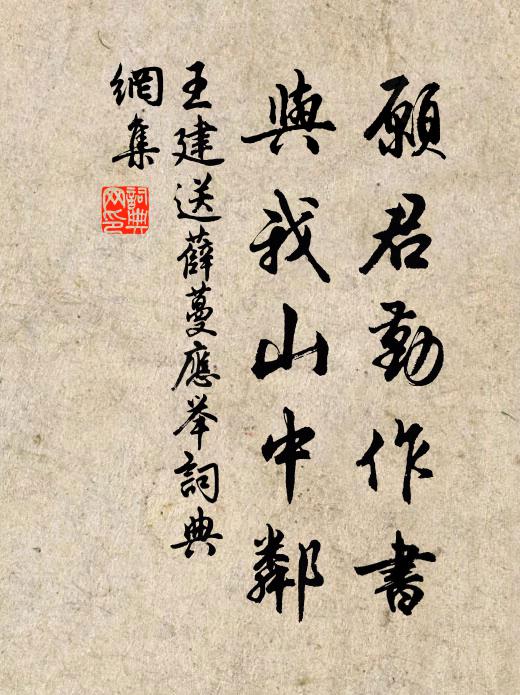 願君勤作書
與我山中鄰
王建送薛蔓應举詞典
網集
詞典
网印